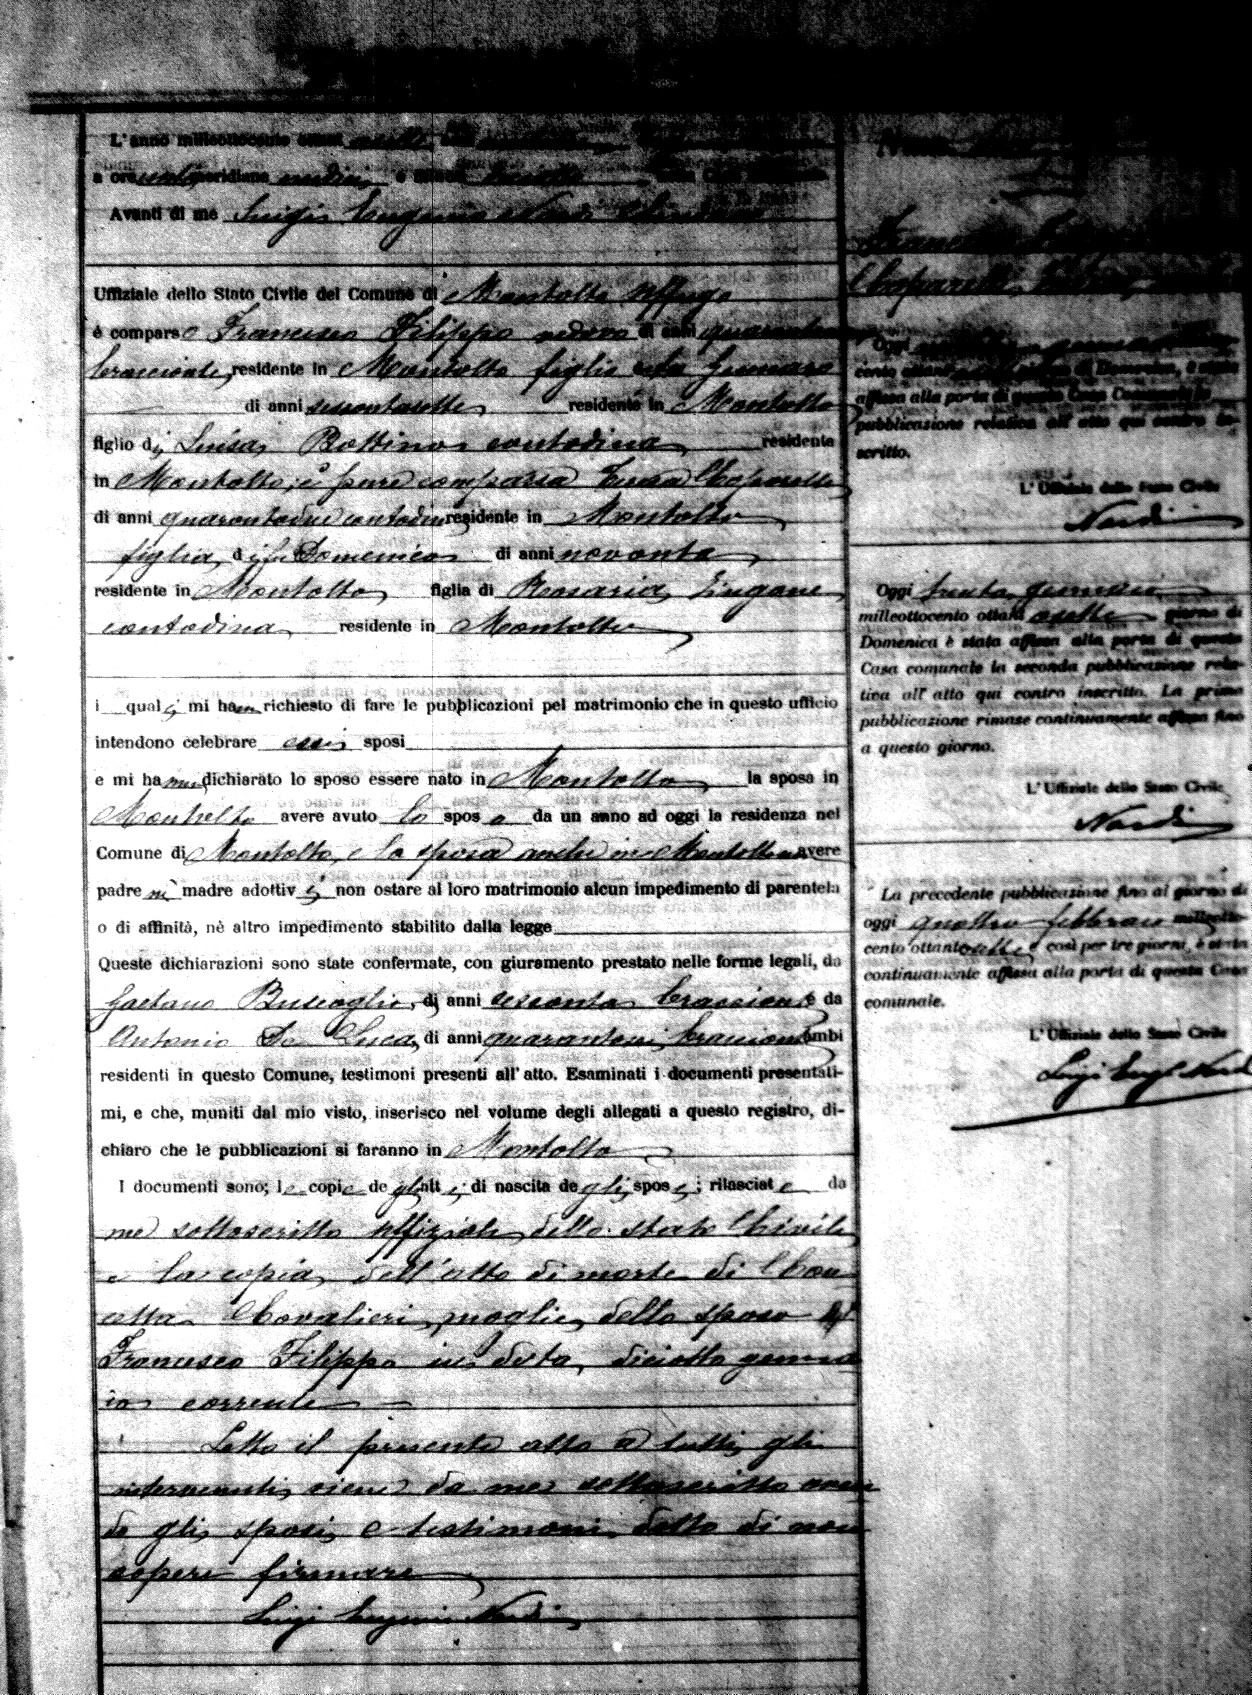 L'anno milleottocento
a ore meridiane e minuti Casa Comunale
Avanti di me Luigi Eugenio Nardi Sindaco
Uffiziale dello Stato Civile del Comune di Montalto Uffugo
è comparso Francesco Filippo vedovo di anni
bracciante, residente in Montalto figlio di Gennaro
di anni sessantasette residente in Montalto
figlio di Luisa Bottino contadina residente
in Montalto, è pure comparsa Teresa Chaparelli
di anni quarantadue contadina residente in Montalto
figlia di Domenico di anni novanta
residente in Montalto figlia di Rosaria Zingone
contadina residente in Montalto
i quali mi hanno richiesto di fare le pubblicazioni pel matrimonio che in questo ufficio
intendono celebrare essi sposi
e mi hanno dichiarato lo sposo essere nato in Montalto la sposa in
Montalto avere avuto lo sposo da un anno ad oggi la residenza nel
Comune di Montalto, e la sposa anche in Montalto avere
padre nè madre adottivi non ostare al loro matrimonio alcun impedimento di parentela
o di affinità, nè altro impedimento stabilito dalla legge
Queste dichiarazioni sono state confermate, con giuramento prestato nelle forme legali, da
Gaetano Buscoglio, di anni sessanta bracciante e da
Antonio De Luca, di anni bracciante ambi
residenti in questo Comune, testimoni presenti all'atto. Esaminati i documenti presentati-
mi, e che, muniti dal mio visto, inserisco nel volume degli allegati a questo registro, di-
chiaro che le pubblicazioni si faranno in Montalto
I documenti sono; le copie degli atti di nascita degli sposi; rilasciate da
me sottoscritto uffiziale dello stato Civile
e la copia dell'atto di morte di Con
cetta Chavalieri moglie dello sposo
Francesco Filippo in data diciotto genna
io corrente
Letto il presente atto a tutti gli
intervenuti, viene da me sottoscritto aven
do gli sposi e testimoni detto di non
sapere firmare
Luigi Eugenio Nardi
Francesco Filippo
Chaparelli Teresa
Oggi
cento ottanta di Domenica, è stata
affissa alla porta di questa Casa Comunale la
pubblicazione relativa all'atto qui contro in-
scritto.
L'Uffiziale dello Stato Civile
Nardi
Oggi trenta gennaio
milleottocento ottantasette giorno di
Domenica è stata affissa alla porta di questa
Casa comunale la seconda pubblicazione rela-
tiva all'atto qui contro inscritto. La prima
pubblicazione rimase continuamente affissa fino
a questo giorno.
L'Uffiziale dello Stato Civile
Nardi
La precedente pubblicazione fino al giorno di
oggi quattro febbraio milleotto-
cento ottantasette e così per tre giorni, è stata
continuamente affissa alla porta di questa Casa
comunale.
L'Uffiziale dello Stato Civile
Luigi Eug Nardi